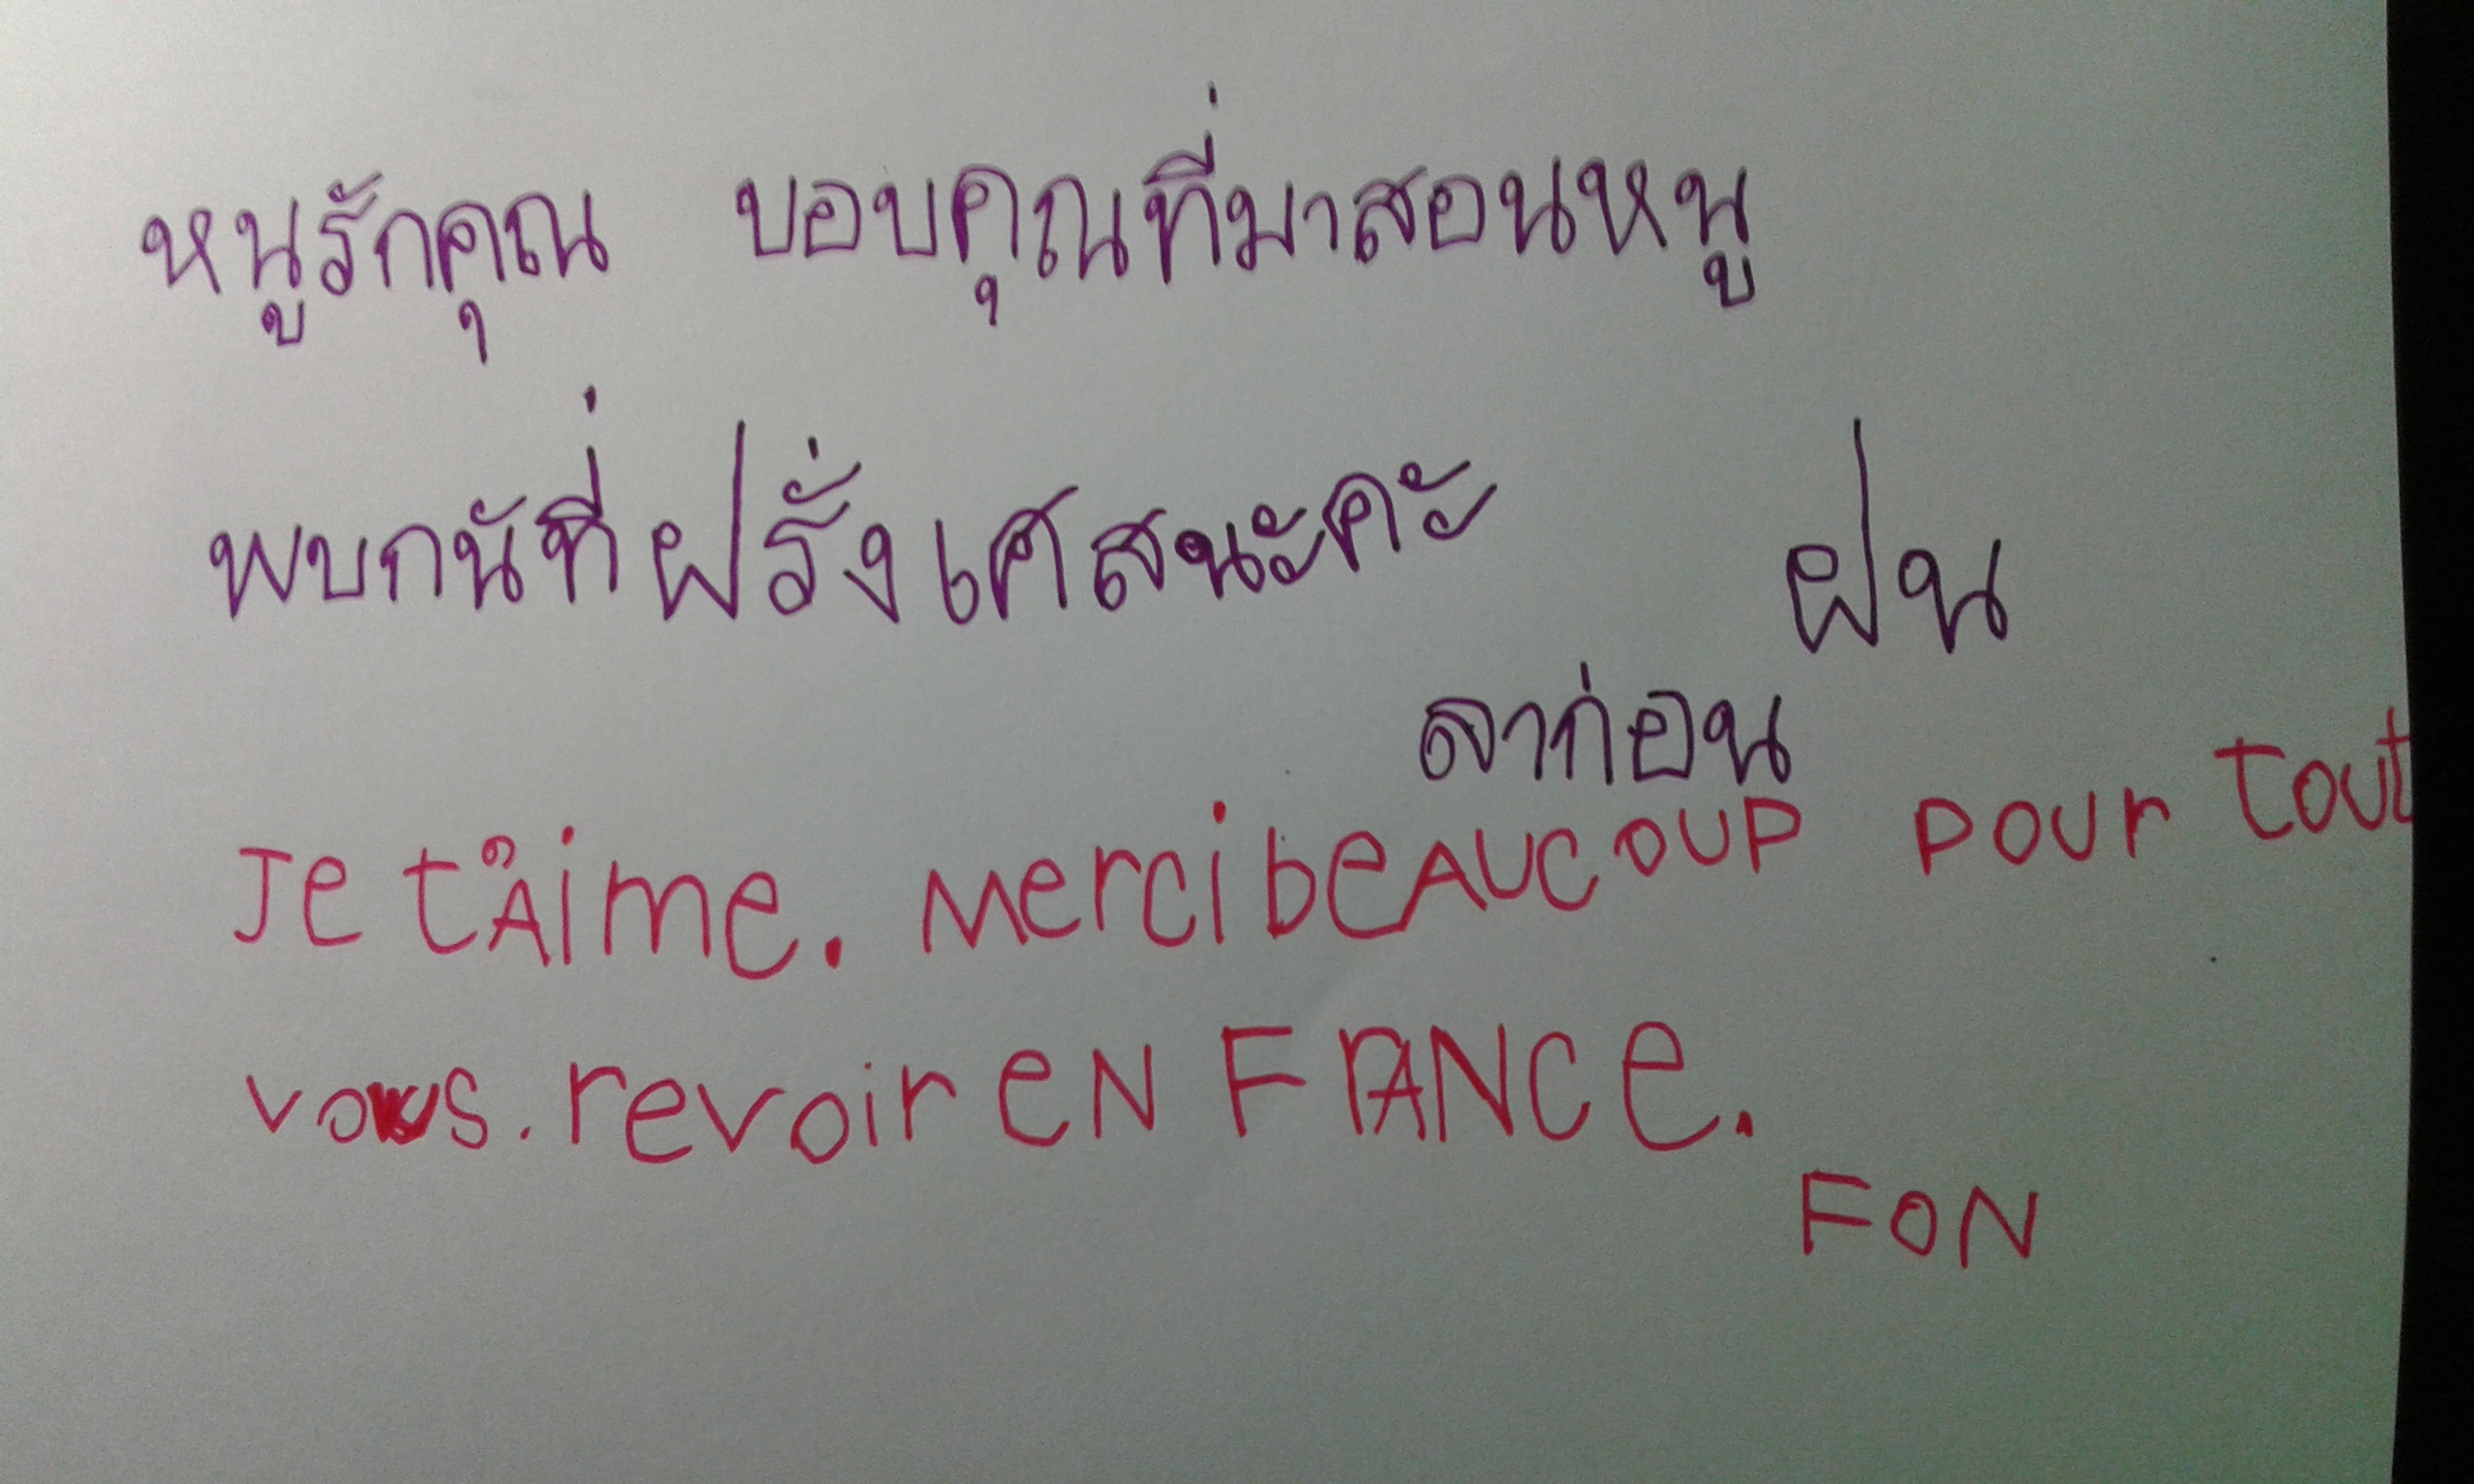 หนูรักคุณ ขอบคุณที่มาสอนหนู
พบกันที่ฝรั่งเศสนะคะ
ฝน
ลาก่อน
Je t'Aime. Merci beAUCOUP pour tout
vous. revoir eN FrANCe.
FON